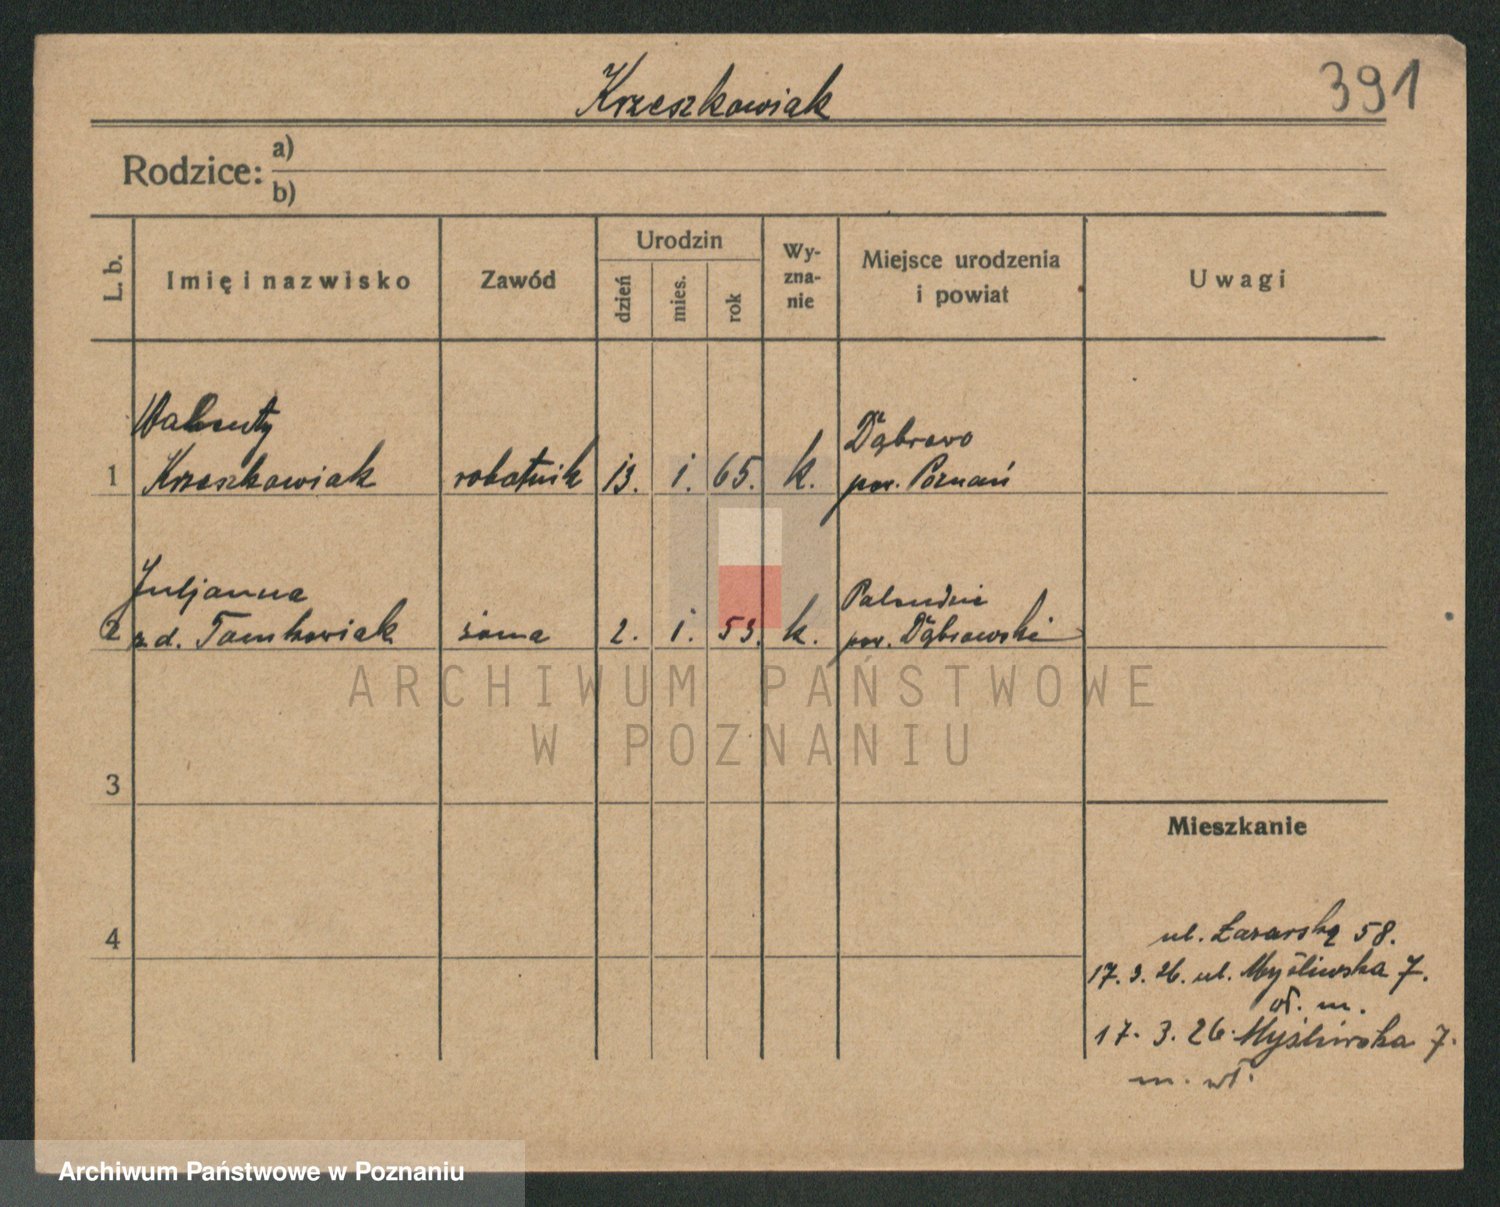 391
Krzeszkowiak
Rodzice: a)
b)
L. b.
Imię i nazwisko
Zawód
Urodzin
dzień
mies.
rok
Wy-
zna-
nie
Miejsce urodzenia
i powiat
Uwagi
Walenty
1 Krzeszkowiak robotnik 13. 1. 65. k.
Dąbrowo
pow. Poznań
Juljanna
2 z d. Tomkowiak żona 2. 1. 53. k.
pow. Dąbrowski
3
4
Mieszkanie
ul. Łazarska 58.
17. 3. 26. ul. Myśliwska 7.
m.
17. 3. 26. Myśliwska 7.
m. wł.
ARCHIWUM PAŃSTWOWE
W POZNANIU
Archiwum Państwowe w Poznaniu